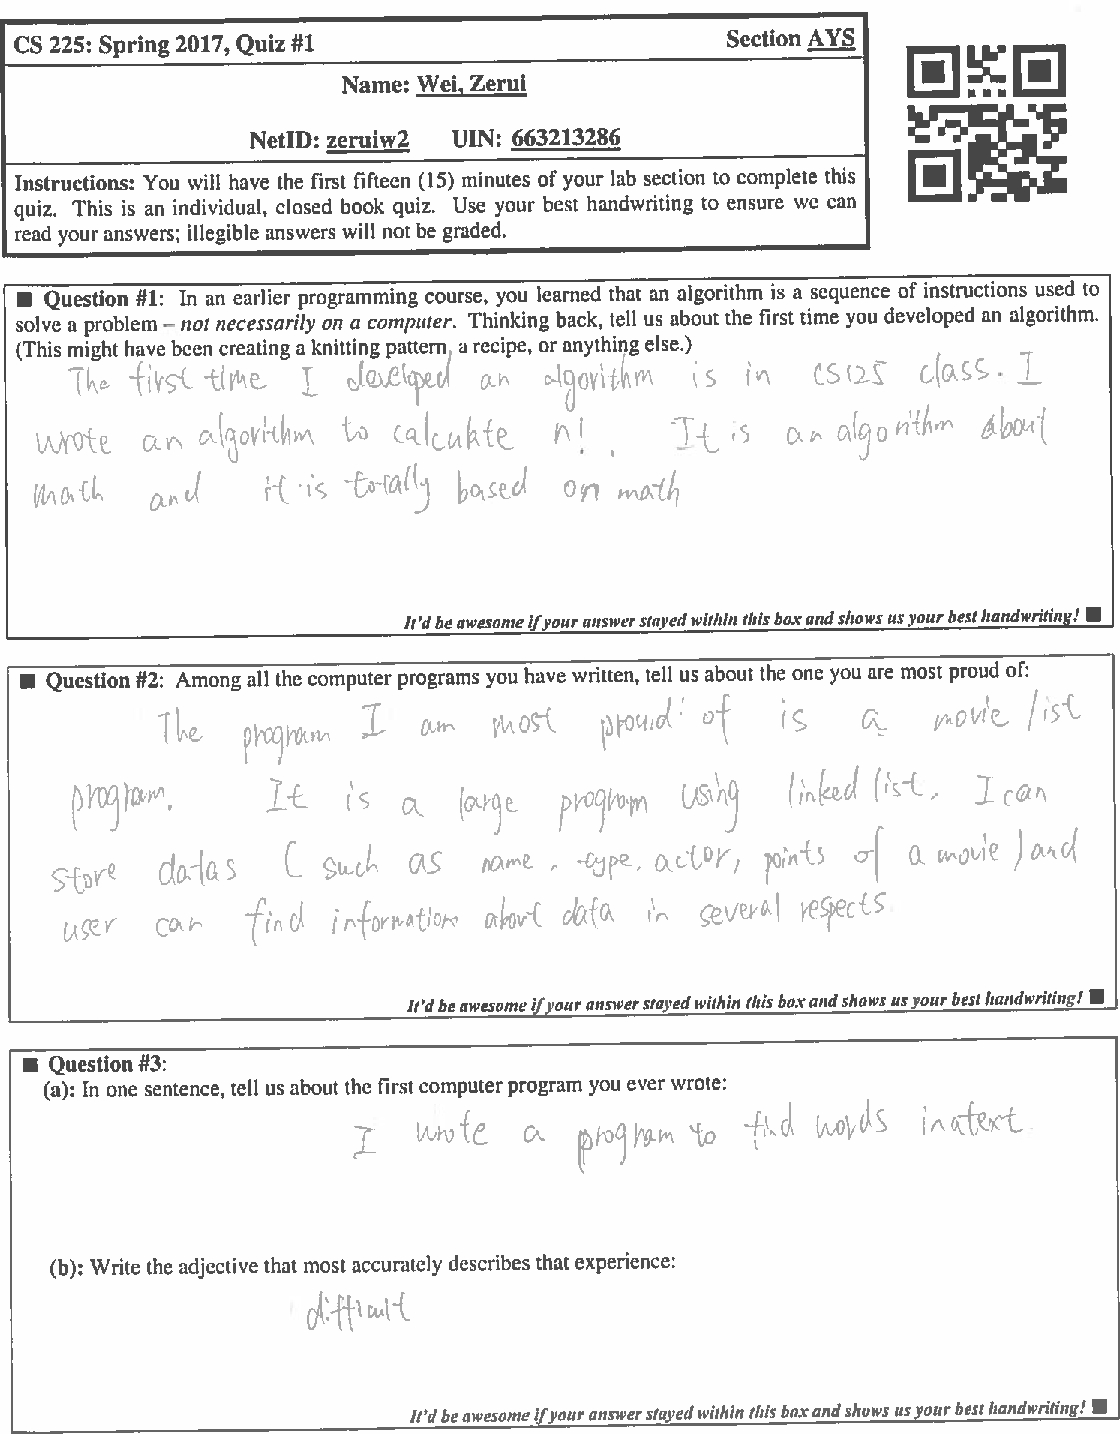 CS 225: Spring 2017, Quiz #1
Section AYS
Name: Wei, Zerui
NetID: zeruiw2 UIN: 663213286
Instructions: You will have the first fifteen (15) minutes of your lab section to complete this
quiz. This is an individual, closed book quiz. Use your best handwriting to ensure we can
read your answers; illegible answers will not be graded.
■ Question #1: In an earlier programming course, you learned that an algorithm is a sequence of instructions used to
solve a problem – not necessarily on a computer. Thinking back, tell us about the first time you developed an algorithm.
(This might have been creating a knitting pattern, a recipe, or anything else.)
The first time I developed an algorithm is in CS125 class. I
wrote an algorithm to calculate n!. It is an algorithm about
math and it is totally based on math
It'd be awesome if your answer stayed within this box and shows us your best handwriting! ■
■ Question #2: Among all the computer programs you have written, tell us about the one you are most proud of:
The program I am most proud of is a movie list
program. It is a large program using linked list. I can
store datas (such as name, type, actor, points of a movie) and
user can find information about data in several respects
It'd be awesome if your answer stayed within this box and shows us your best handwriting! ■
■ Question #3:
(a): In one sentence, tell us about the first computer program you ever wrote:
I wrote a program to find words in a text.
(b): Write the adjective that most accurately describes that experience:
difficult
It'd be awesome if your answer stayed within this box and shows us your best handwriting! ■